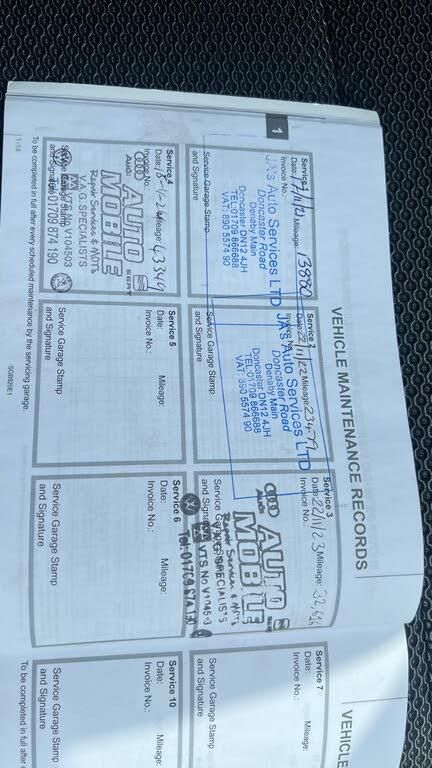 VEHICLE MAINTENANCE RECORDS
1
Service 1
Date: Mileage: 13892
Invoice No.:
JA's Auto Services LTD
Doncaster Road
Denaby Main
Doncaster DN12 4JH
TEL: 01709 866688
VAT: 890 5574 90
Service Garage Stamp
and Signature
Service 2
Date: 22/11/22 Mileage:
Invoice No.
JA's Auto Services LTD
Doncaster Road
Denaby Main
Doncaster DN12 4JH
TEL: 01709 866688
VAT: 890 5574 90
Service Garage Stamp
and Signature
Service 3
Date: 22/11/23 Mileage:
Invoice No.:
Audi SEAT
AUTO
MOBILE
Repair Services & MOTs
V.A.G. SPECIALISTS
VTS No V104503
Tel: 01709 874 190
Service Garage Stamp
and Signature
Service 4
Date: Mileage: 43349
Invoice No.:
Audi SEAT
AUTO
MOBILE
Repair Services & MOTs
V.A.G. SPECIALISTS
VTS No V104503
Tel: 01709 874 190
Service Garage Stamp
and Signature
Service 5
Date: Mileage:
Invoice No.:
Service Garage Stamp
and Signature
Service 6
Date: Mileage:
Invoice No.:
Service Garage Stamp
and Signature
To be completed in full after every scheduled maintenance by the servicing garage.
1-14
SGB920E1
VEHICLE
Service 7
Date: Mileage:
Invoice No.:
Service Garage Stamp
and Signature
Service 10
Date: Mileage:
Invoice No.:
Service Garage Stamp
and Signature
To be completed in full after e